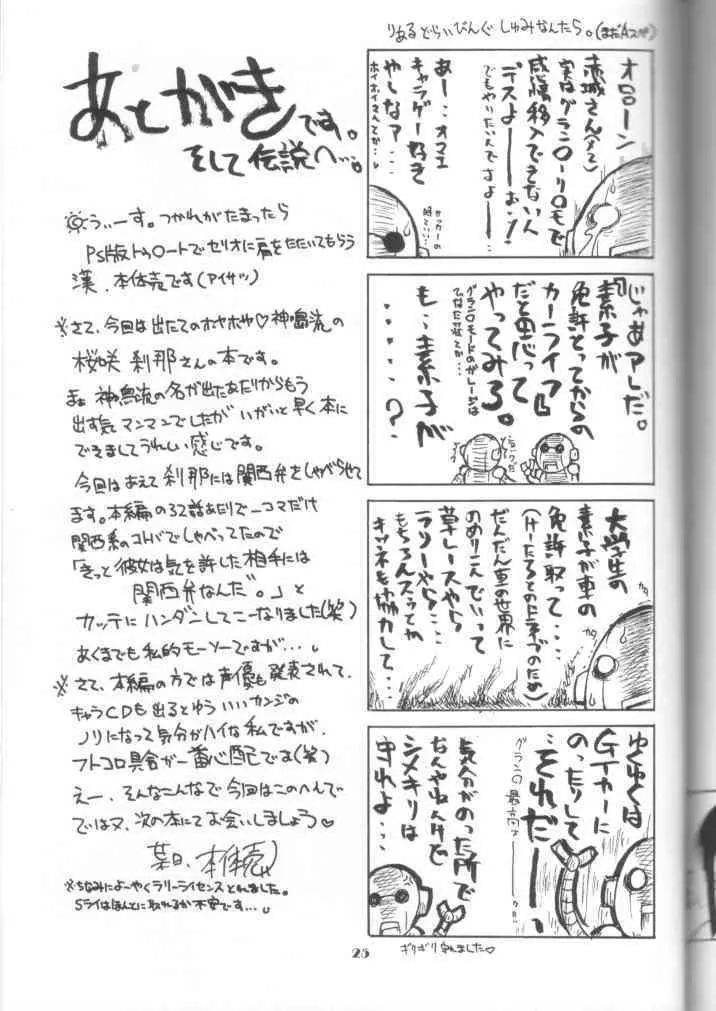 あとがきです。
そして伝説へ…。
うぃーす。つかれがたまったら
PS版トゥ○ートでセリオに肩をたたいてもらう
漢、本体売です(アイサツ)
※さて、今回は出たてのホヤホヤ♡神鳴流の
桜咲 刹那さんの本です。
まぁ 神鳴流の名が出たあたりからもう
出す気マンマンでしたがいがいと早く本に
できましてうれしい感じです。
今回はあえて刹那には関西弁をしゃべらせて
ます。本編の37話あたりで一コマだけ
関西系のコトバでしゃべってたので
「きっと彼女は気を許した相手には
関西弁なんだ。」と
カッテにハンダンしてこーなりました(笑)
あくまでも私的モーソーですが…
※さて、本編の方では声優も発表されて、
キャラCDも出るとゆういいカンジの
ノリになって気分がハイな私ですが、
フトコロ具合が一番心配です(笑)
えー、そんなこんなで今回はこのへんで
ではヌ、次の本にてお会いしましょう♡
某日、本体売
※ちなみによーやくラリーライセンスとれました。
Sライはほんとに取れるか不安です…
りあるどらいびんぐ しゅみなんたら。(まだAスペ)
オローン
赤城さん(メ2)
実はグラン○ーリ○モで
感情移入できない人
デスよーーおぅ!
でもやりたいんですよーー
あー…オマエ
キャラゲー好き
やしなァ…
サッカーの
時でいい…
『じゃあアレだ。
素子が
免許とってからの
カーライフ』
だと思って
やってみろ。
グラン○モードのガレージは
ひなた荘でか…
も、素子が
・・・・・?
大学生の
素子が車の
免許取って…
(けーたろとのドライブのため)
だんだん車の世界に
のめりこんでいって
草レースやら
ラリーやら…
もちろんスゥとか
キツネも協力して…
ガタ
ガタ
ゆくゆくは
GTカーに
のったりして
…それだーーっ
グラン○最高ァーー!!
気分がのった所で
なんやねんけど
シメキリは
守れよ…
ギリギリ守れました♡
25